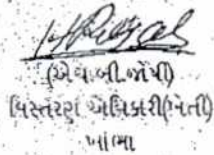 (એચ.બી.જોષી)
વિસ્તરણ અધિકારી(ખેતી)
ખાંભા